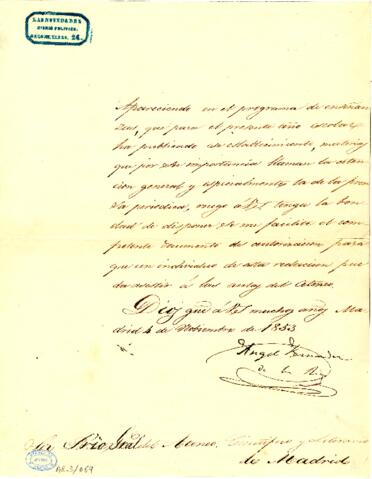 LAS NOVEDADES
DIARIO POLITICO.
24.
Apareciendo en el programa de enseñan
zas, que para el presente año escolar
ha publicado ese establecimiento, materias
que por su importancia llaman la aten
cion general y especialmente la de la pren
sa periodica, ruego a V.S. tenga la bon
dad de disponer se me facilite el com
petente documento de autorizacion para
que un individuo de esta redaccion pue
da asistir á las aulas del Ateneo.
Dios gue a V.S. muchos años Ma
drid 4 de Noviembre de 1853
Angel Fernandez
de los Rios
Sor Srio Gral del Ateneo Cientifico y Literario
de Madrid